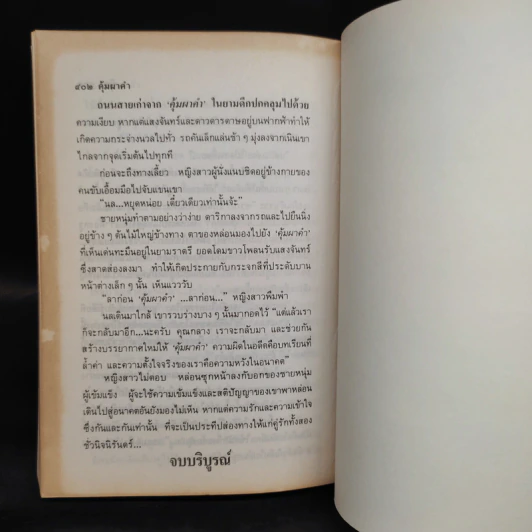 ๙๐๒ คุ้มผาคำ
ถนนสายเก่าจาก ‘คุ้มผาคำ’ ในยามดึกปกคลุมไปด้วย
ความเงียบ หากแต่แสงจันทร์และดาวดารดาษอยู่บนฟากฟ้าทำให้
เกิดความกระจ่างนวลไปทั่ว รถคันเล็กแล่นช้า ๆ มุ่งลงจากเนินเขา
ไกลจากจุดเริ่มต้นไปทุกที
ก่อนจะถึงทางเลี้ยว หญิงสาวผู้นั่งแนบชิดอยู่ข้างกายของ
คนขับเอื้อมมือไปจับแขนเขา
“นล...หยุดหน่อย เดี๋ยวเดียวเท่านั้นจ้ะ”
ชายหนุ่มทำตามอย่างว่าง่าย ดาริกาลงจากรถและไปยืนนิ่ง
อยู่ข้าง ๆ ต้นไม้ใหญ่ข้างทาง ตาของหล่อนมองไปยัง ‘คุ้มผาคำ’
ที่เห็นเด่นทะมึนอยู่ในยามราตรี ยอดโดมขาวโพลนรับแสงจันทร์
ซึ่งสาดส่องลงมา ทำให้เกิดประกายกับกระจกสีที่ประดับบาน
หน้าต่างเล็ก ๆ นั้น เห็นแวววับ
“ลาก่อน ‘คุ้มผาคำ’ ...ลาก่อน...” หญิงสาวพึมพำ
นลเดินมาใกล้ เขารวบร่างบาง ๆ นั้นมากอดไว้ “แต่แล้วเรา
ก็จะกลับมาอีก...นะครับ คุณกลาง เราจะกลับมา และช่วยกัน
สร้างบรรยากาศใหม่ให้ ‘คุ้มผาคำ’ ความผิดในอดีตคือบทเรียนที่
ล้ำค่า และความตั้งใจจริงของเราคือความหวังในอนาคต”
หญิงสาวไม่ตอบ หล่อนซุกหน้าลงกับอกของชายหนุ่ม
ผู้เข้มแข็ง ผู้จะใช้ความเข้มแข็งและสติปัญญาของเขาพาหล่อน
เดินไปสู่อนาคตอันยังมองไม่เห็น หากแต่ความรักและความเข้าใจ
ซึ่งกันและกันเท่านั้น ที่จะเป็นประทีปส่องทางให้แก่คู่รักทั้งสอง
ชั่วนิจนิรันดร์...
จบบริบูรณ์